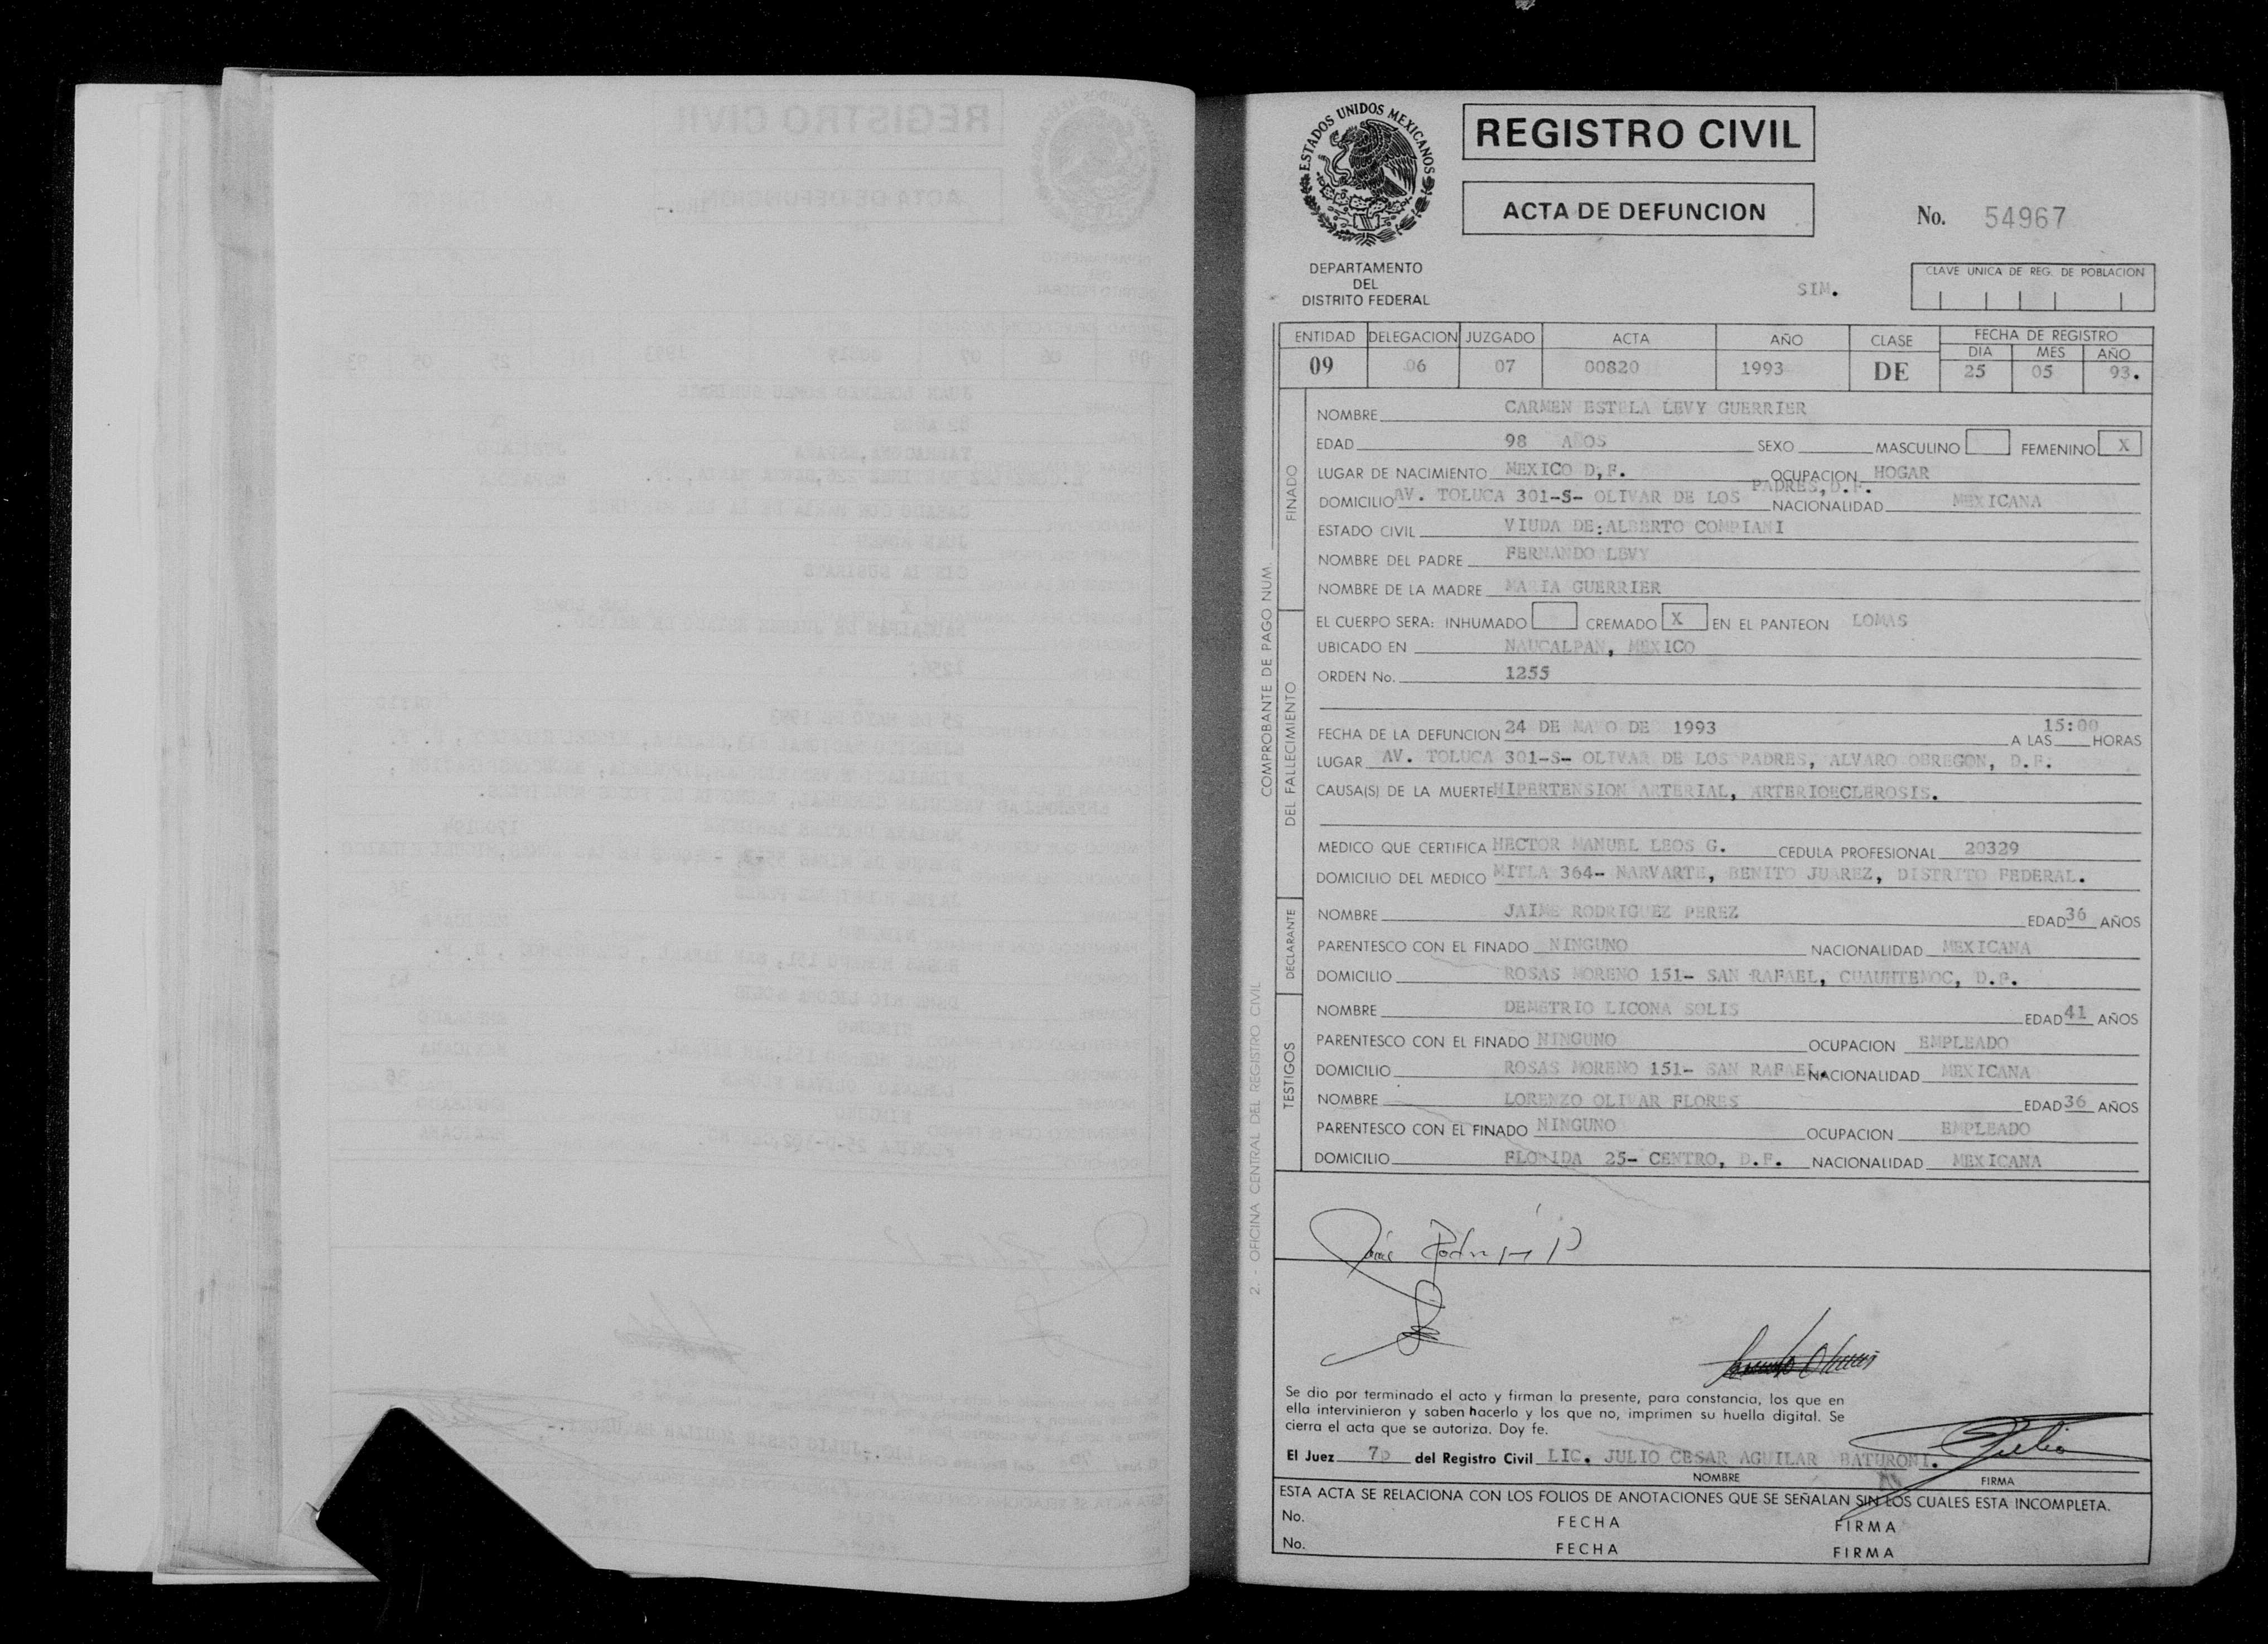 ESTADOS UNIDOS MEXICANOS
REGISTRO CIVIL
ACTA DE DEFUNCION
No. 54967
DEPARTAMENTO
DEL
DISTRITO FEDERAL
SIM.
CLAVE UNICA DE REG. DE POBLACION
ENTIDAD DELEGACION JUZGADO ACTA AÑO CLASE FECHA DE REGISTRO
DIA MES AÑO
09 06 07 00820 1993 DE 25 05 93.
COMPROBANTE DE PAGO NUM.
2. - OFICINA CENTRAL DEL REGISTRO CIVIL
FINADO
NOMBRE CARMEN ESTELA LEVY GUERRIER
EDAD 98 AÑOS SEXO MASCULINO FEMENINO X
LUGAR DE NACIMIENTO MEXICO D,F. OCUPACION HOGAR
DOMICILIO AV. TOLUCA 301-S- OLIVAR DE LOS PADRES,D.F. NACIONALIDAD MEXICANA
ESTADO CIVIL VIUDA DE:ALBERTO COMPIANI
NOMBRE DEL PADRE FERNANDO LEVY
NOMBRE DE LA MADRE MARIA GUERRIER
DEL FALLECIMIENTO
EL CUERPO SERA: INHUMADO CREMADO X EN EL PANTEON LOMAS
UBICADO EN NAUCALPAN, MEXICO
ORDEN No. 1255
FECHA DE LA DEFUNCION 24 DE MAYO DE 1993 A LAS 15:00 HORAS
LUGAR AV. TOLUCA 301-S- OLIVAR DE LOS PADRES, ALVARO OBREGON, D.F.
CAUSA(S) DE LA MUERTE HIPERTENSION ARTERIAL, ARTERIOECLEROSIS.
MEDICO QUE CERTIFICA HECTOR MANUEL LEOS G. CEDULA PROFESIONAL 20329
DOMICILIO DEL MEDICO MITLA 364- NARVARTE, BENITO JUAREZ, DISTRITO FEDERAL.
DECLARANTE
NOMBRE JAIME RODRIGUEZ PEREZ EDAD 36 AÑOS
PARENTESCO CON EL FINADO NINGUNO NACIONALIDAD MEXICANA
DOMICILIO ROSAS MORENO 151- SAN RAFAEL, CUAUHTEMOC, D.F.
TESTIGOS
NOMBRE DEMETRIO LICONA SOLIS EDAD 41 AÑOS
PARENTESCO CON EL FINADO NINGUNO OCUPACION EMPLEADO
DOMICILIO ROSAS MORENO 151- SAN RAFAEL. NACIONALIDAD MEXICANA
NOMBRE LORENZO OLIVAR FLORES EDAD 36 AÑOS
PARENTESCO CON EL FINADO NINGUNO OCUPACION EMPLEADO
DOMICILIO FLORIDA 25- CENTRO, D.F. NACIONALIDAD MEXICANA
Se dio por terminado el acto y firman la presente, para constancia, los que en
ella intervinieron y saben hacerlo y los que no, imprimen su huella digital. Se
cierra el acta que se autoriza. Doy fe.
El Juez 7o del Registro Civil LIC. JULIO CESAR AGUILAR BATURONI.
NOMBRE FIRMA
ESTA ACTA SE RELACIONA CON LOS FOLIOS DE ANOTACIONES QUE SE SEÑALAN SIN LOS CUALES ESTA INCOMPLETA.
No. FECHA FIRMA
No. FECHA FIRMA